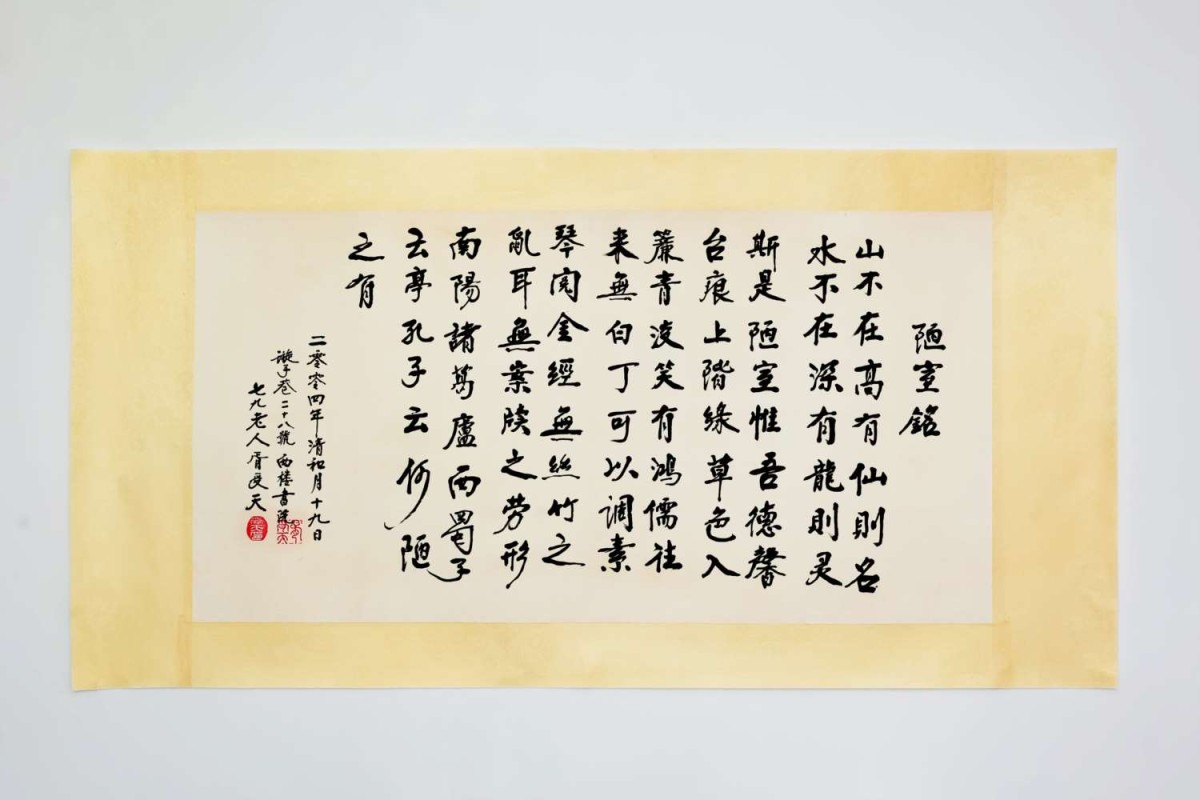 陋室銘
山不在高有仙則名
水不在深有龍則灵
斯是陋室惟吾德馨
台痕上階緣草色入
簾青谈笑有鴻儒往
来無白丁可以调素
琴閲金經無絲竹之
亂耳無案牘之劳形
南陽諸葛廬西蜀子
云亭孔子云何陋
之有
二零零四年清和月十九日
漩子巷二十八號西楼書院
七九老人胥受天